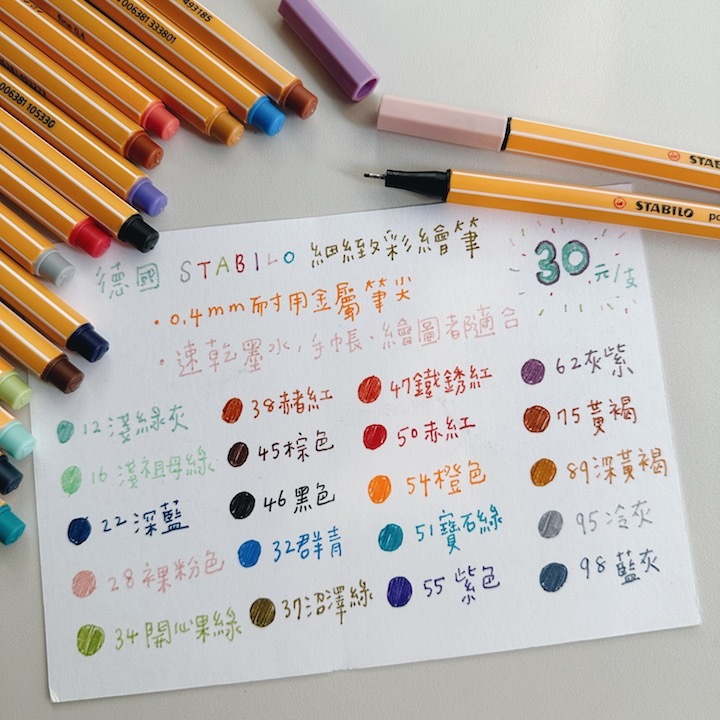 493185
006381 333801
006381 105330
STAB
STABILO po
德國 STABILO 細緻彩繪筆
30元/支
・0.4mm耐用金屬筆尖
・速乾墨水,手帳、繪圖都適合
12 淺綠灰
16 淺祖母綠
22 深藍
28 裸粉色
34 開心果綠
38 赭紅
45 棕色
46 黑色
32 群青
37 沼澤綠
47 鐵銹紅
50 赤紅
54 橙色
51 寶石綠
55 紫色
62 灰紫
75 黃褐
89 深黃褐
95 冷灰
98 藍灰